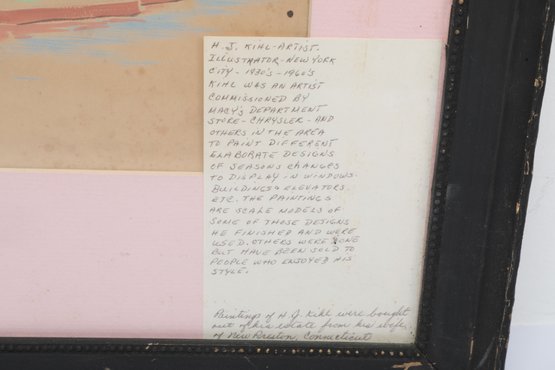 H. J. KIHL - ARTIST.
ILLUSTRATOR - NEW YORK
CITY - 1930'S - 1960'S
KIHL WAS AN ARTIST
COMMISSIONED BY
MACY'S DEPARTMENT
STORE - CHRYSLER - AND
OTHERS IN THE AREA
TO PAINT DIFFERENT
ELABORATE DESIGNS
OF SEASONS CHANGES
TO DISPLAY IN WINDOWS.
BUILDINGS & ELEVATORS.
ETC. THE PAINTINGS
ARE SCALE MODELS OF
SOME OF THOSE DESIGNS
HE FINISHED AND WERE
USED. OTHERS WERE DONE
BUT HAVE BEEN SOLD TO
PEOPLE WHO ENJOYED HIS
STYLE.
Paintings of H. J. Kihl were bought
out of his estate from his wife,
of New Preston, Connecticut